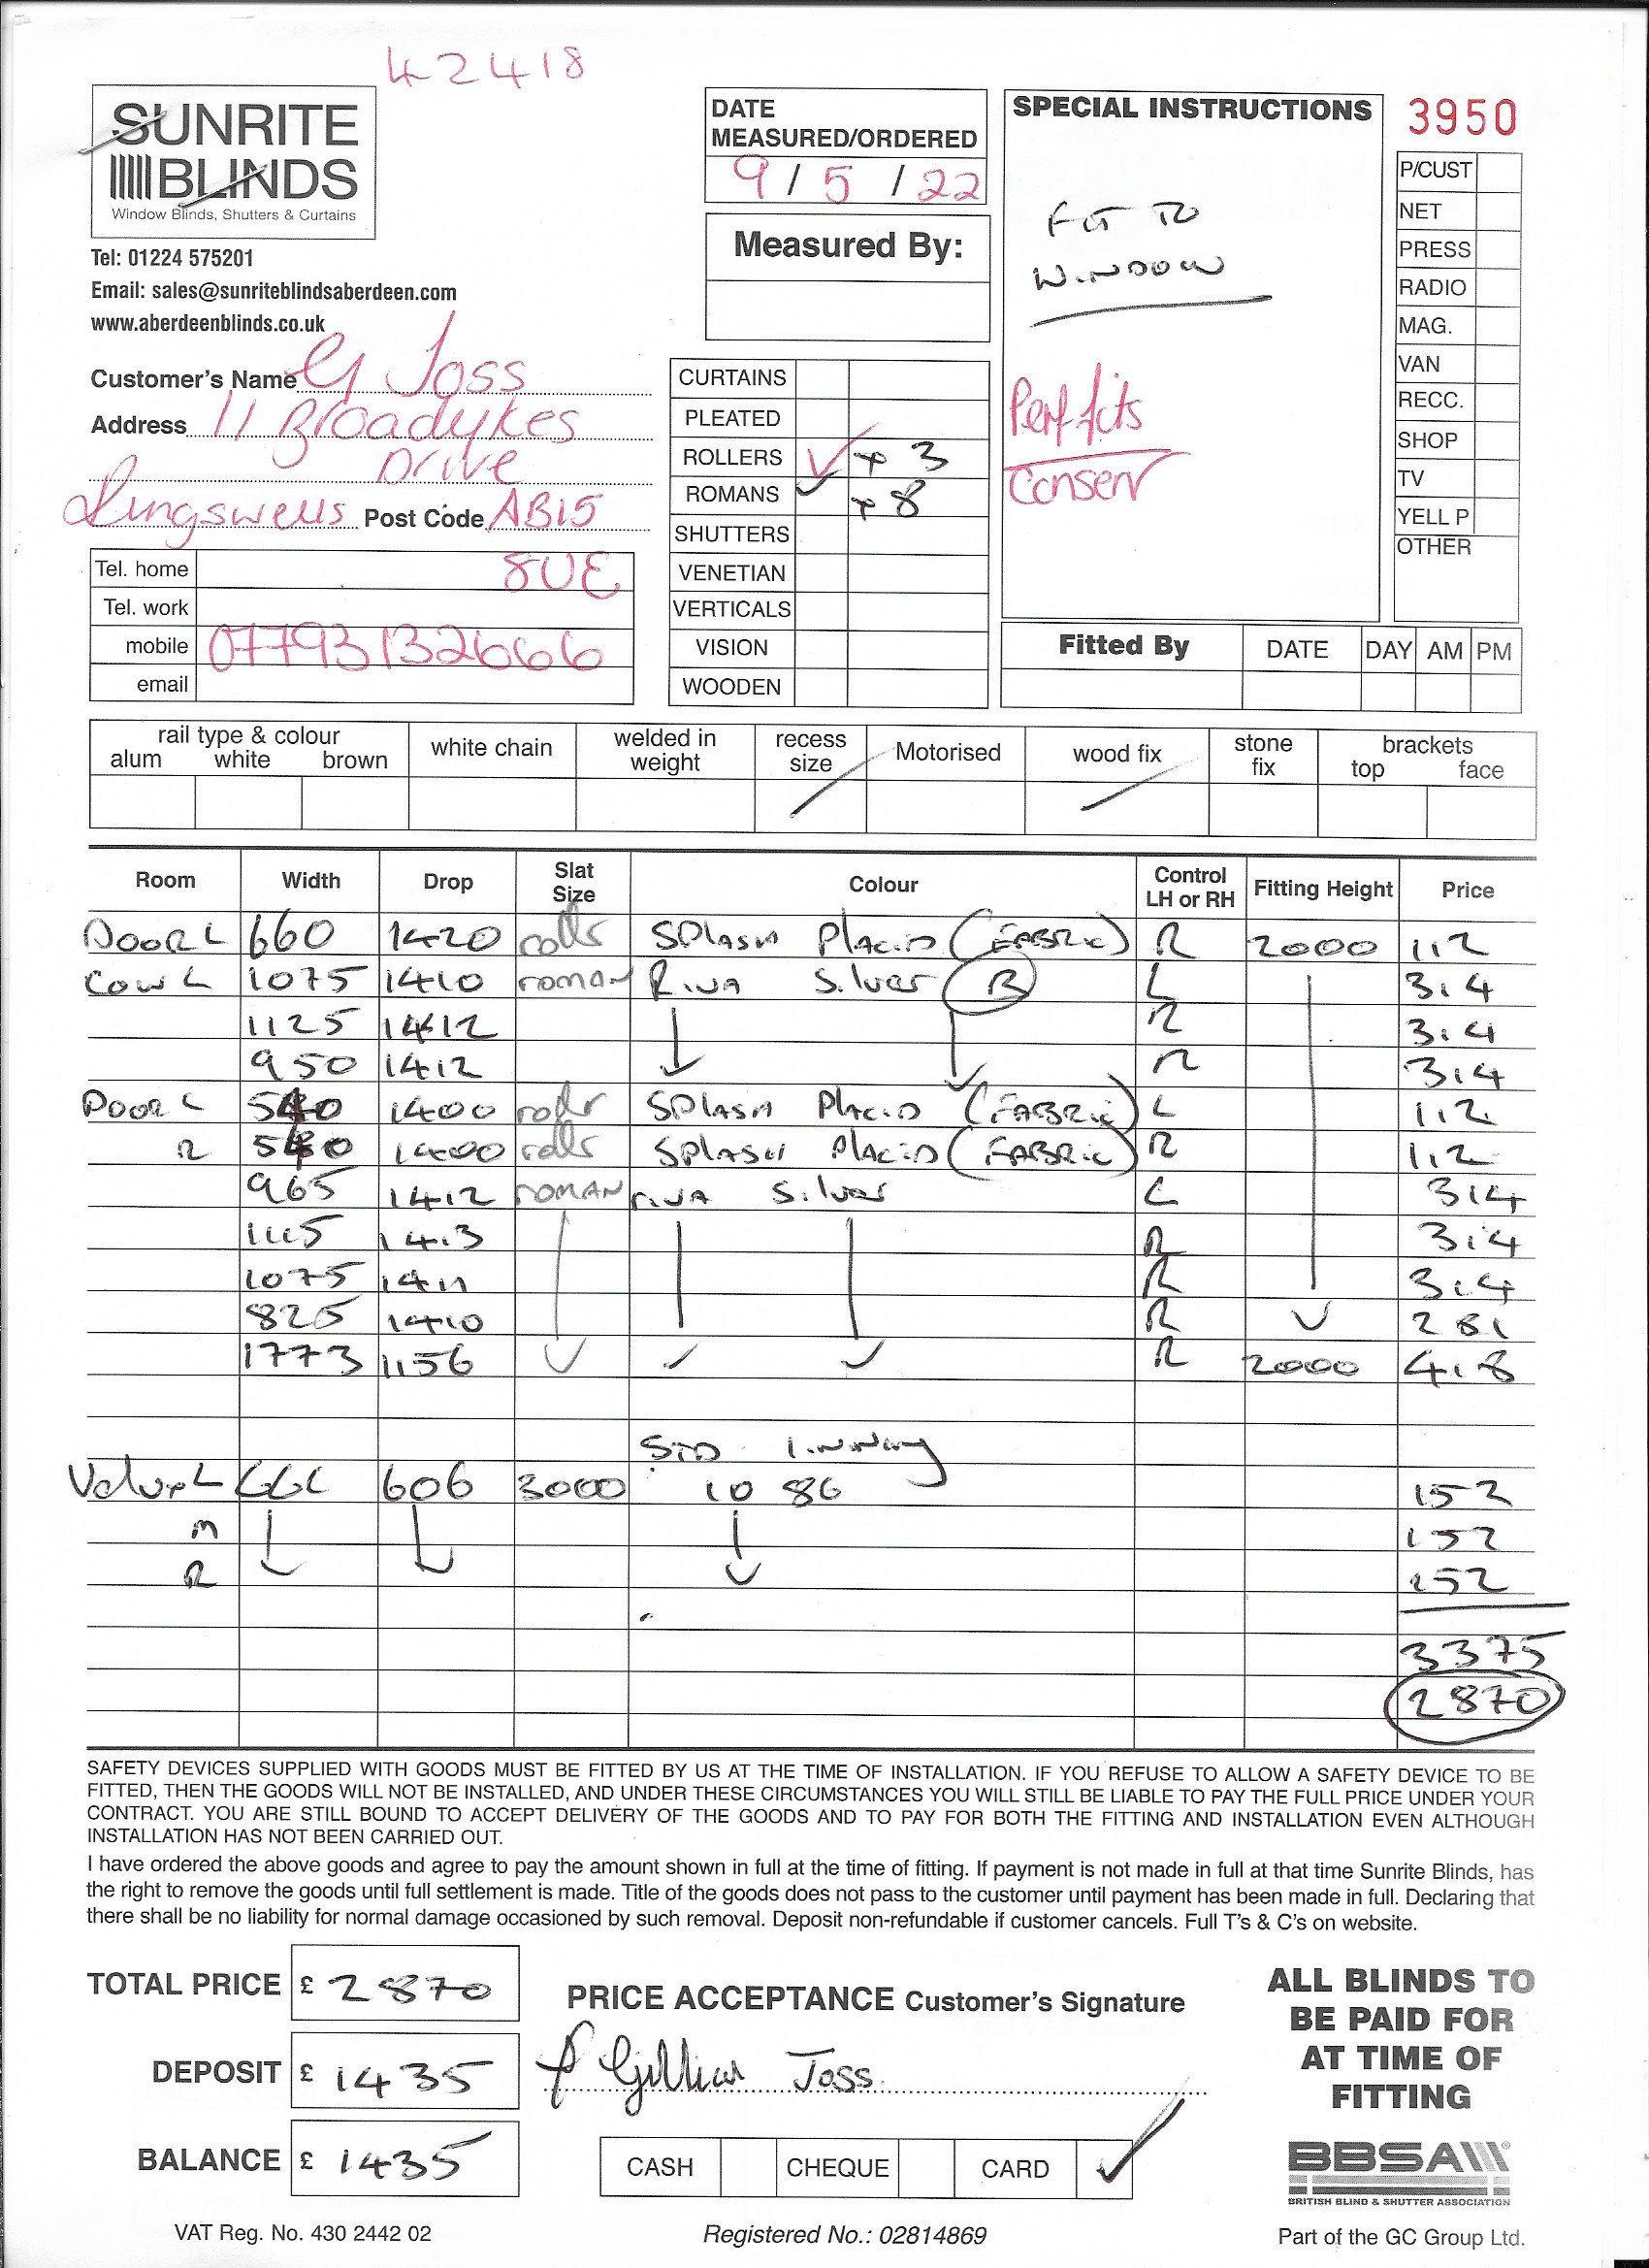 42418
SUNRITE
BLINDS
Window Blinds, Shutters & Curtains
Tel: 01224 575201
Email: sales@sunriteblindsaberdeen.com
www.aberdeenblinds.co.uk
DATE
MEASURED/ORDERED
9 / 5 / 22
Measured By:
SPECIAL INSTRUCTIONS
FIT TO
WINDOW
Perf fits
Conserv
3950
P/CUST
NET
PRESS
RADIO
MAG.
VAN
RECC.
SHOP
TV
YELL P
OTHER
Customer's Name G Joss
Address 11 Broadykes
Drive
Kingswells Post Code AB15
8UE
Tel. home
Tel. work
mobile 07793132666
email
CURTAINS
PLEATED
ROLLERS ✓ + 3
ROMANS ✓ + 8
SHUTTERS
VENETIAN
VERTICALS
VISION
WOODEN
Fitted By DATE DAY AM PM
rail type & colour
alum white brown
white chain
welded in
weight
recess
size
Motorised
wood fix
stone
fix
brackets
top face
Room Width Drop Slat Size Colour Control LH or RH Fitting Height Price
DOOR L 660 1420 rolls SPLASH PLACID (FABRIC) R 2000 112
COW L 1075 1410 roman RIVA Silver (B) L 314
1125 1412 R 314
950 1412 R 314
DOOR L 540 1400 roller SPLASH PLACID (FABRIC) L 112
R 540 1400 rolls SPLASH PLACID (FABRIC) R 112
965 1412 ROMAN RIVA Silver L 314
1115 1413 R 314
1075 1411 R 314
825 1410 R 281
1773 1156 R 2000 418
STD lining
Velux L 606 3000 10 86 152
M 152
R 152
3375
2870
SAFETY DEVICES SUPPLIED WITH GOODS MUST BE FITTED BY US AT THE TIME OF INSTALLATION. IF YOU REFUSE TO ALLOW A SAFETY DEVICE TO BE
FITTED, THEN THE GOODS WILL NOT BE INSTALLED, AND UNDER THESE CIRCUMSTANCES YOU WILL STILL BE LIABLE TO PAY THE FULL PRICE UNDER YOUR
CONTRACT. YOU ARE STILL BOUND TO ACCEPT DELIVERY OF THE GOODS AND TO PAY FOR BOTH THE FITTING AND INSTALLATION EVEN ALTHOUGH
INSTALLATION HAS NOT BEEN CARRIED OUT.
I have ordered the above goods and agree to pay the amount shown in full at the time of fitting. If payment is not made in full at that time Sunrite Blinds, has
the right to remove the goods until full settlement is made. Title of the goods does not pass to the customer until payment has been made in full. Declaring that
there shall be no liability for normal damage occasioned by such removal. Deposit non-refundable if customer cancels. Full T's & C's on website.
TOTAL PRICE £ 2870
DEPOSIT £ 1435
BALANCE £ 1435
PRICE ACCEPTANCE Customer's Signature
Gillian Joss
CASH CHEQUE CARD ✓
ALL BLINDS TO
BE PAID FOR
AT TIME OF
FITTING
BBSA
BRITISH BLIND & SHUTTER ASSOCIATION
VAT Reg. No. 430 2442 02
Registered No.: 02814869
Part of the GC Group Ltd.